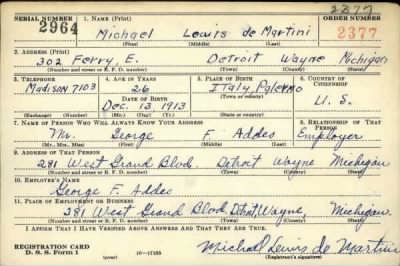 2377
SERIAL NUMBER 1. NAME (Print) ORDER NUMBER
2964 Michael Louis de Martini 2377
(First) (Middle) (Last)
2. ADDRESS (Print)
302 Ferry E. Detroit Wayne Michigan
(Number and street or R. F. D. number) (Town) (County) (State)
3. TELEPHONE 4. AGE IN YEARS 5. PLACE OF BIRTH 6. COUNTRY OF CITIZENSHIP
Madison 7103 26 Italy, Palermo
DATE OF BIRTH (Town or county) U. S.
Dec. 13, 1913
(Exchange) (Number) (Mo.) (Day) (Yr.) (State or country)
7. NAME OF PERSON WHO WILL ALWAYS KNOW YOUR ADDRESS 8. RELATIONSHIP OF THAT PERSON
Mr. George F. Addes Employer
(Mr., Mrs., Miss) (First) (Middle) (Last)
9. ADDRESS OF THAT PERSON
281 West Grand Blvd. Detroit Wayne Michigan
(Number and street or R. F. D. number) (Town) (County) (State)
10. EMPLOYER'S NAME
George F. Addes
11. PLACE OF EMPLOYMENT OR BUSINESS
281 West Grand Blvd, Detroit, Wayne, Michigan.
(Number and street or R. F. D. number) (Town) (County) (State)
I AFFIRM THAT I HAVE VERIFIED ABOVE ANSWERS AND THAT THEY ARE TRUE.
REGISTRATION CARD
D. S. S. Form 1 (over) 16—17105 Michael Louis de Martini
(Registrant's signature)